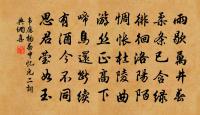 雨歇萬井春
柔條已含綠
徘徊洛陽陌
惆悵杜陵曲
游絲正高下
啼鳥還斷續
有酒今不同
思君瑩如玉
韋應物春中憶元二詩